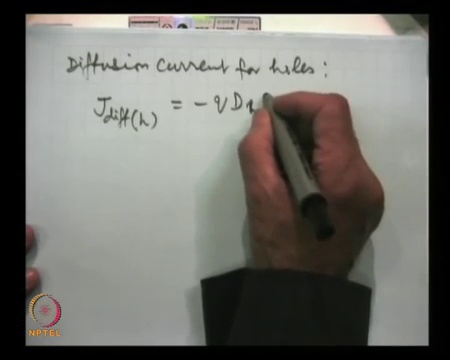 Diffusion Current for holes :
J diff(h) = - q D
NPTEL